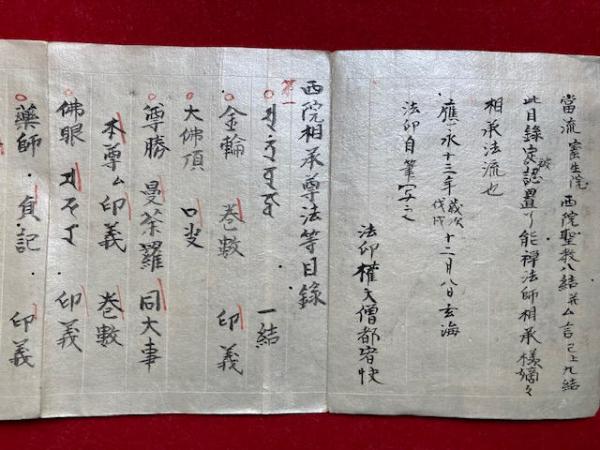 當流蜜生院西院聖教八結并ム言已上九結
此目錄被定認置了能禅法師相承様嫡々
相承法流也
應永十三年歳次戊戌十二月八日玄海
法印自筆写之
法印權大僧都宥快
西院相承尊法等目錄
第一
一結
金輪 巻數 印義
大佛頂 口
尊勝 曼荼羅 同大事
本尊ム印義 巻數
佛眼 印義
藥師 負記 印義